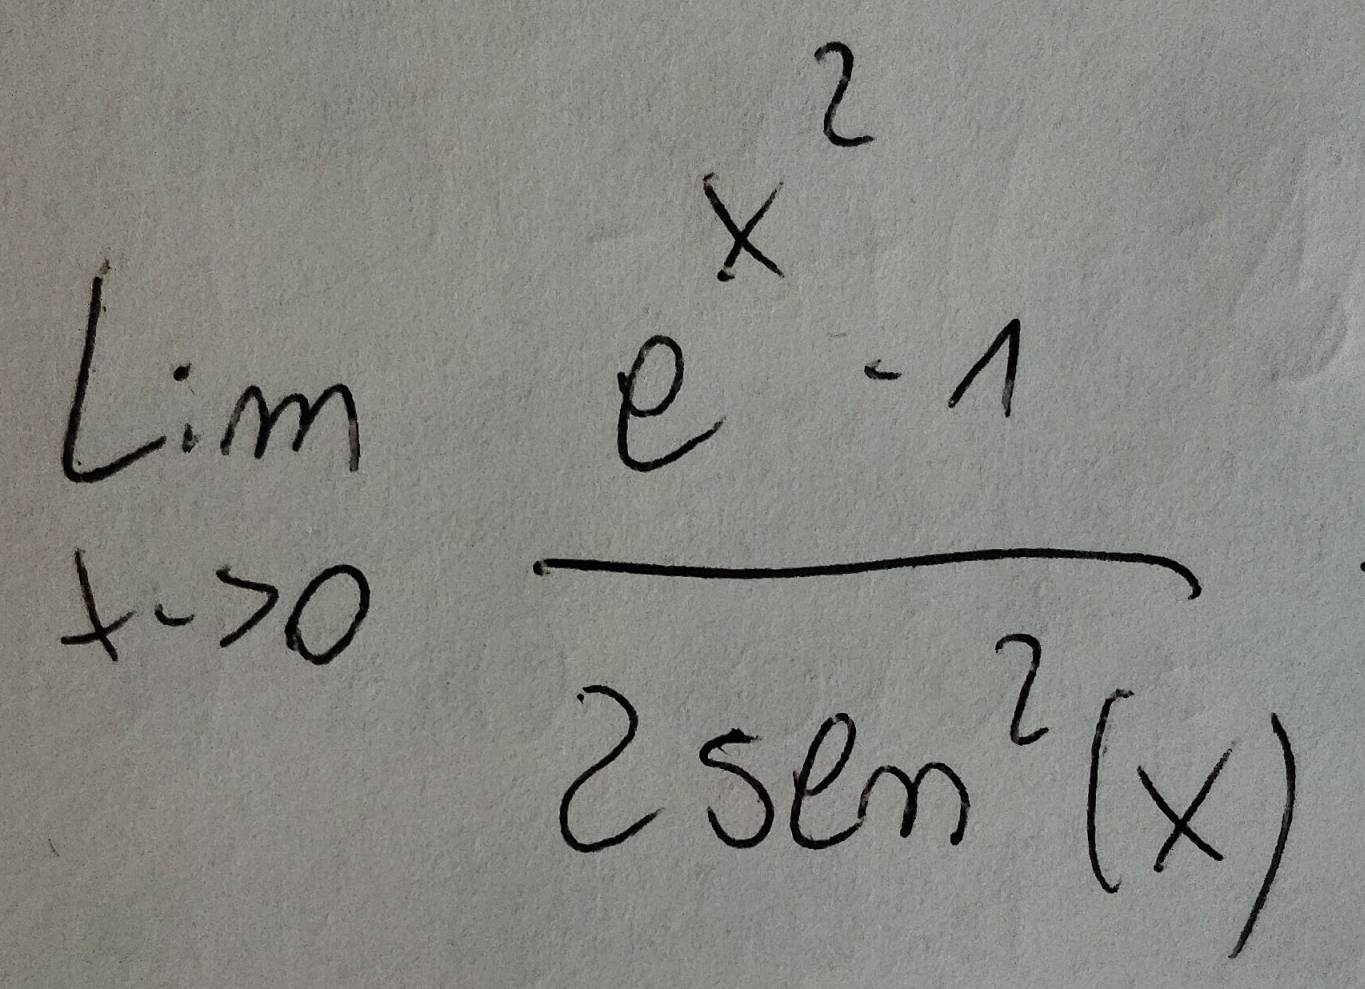 Lim x->0 e^x^2 - 1
2 sen^2 (x)